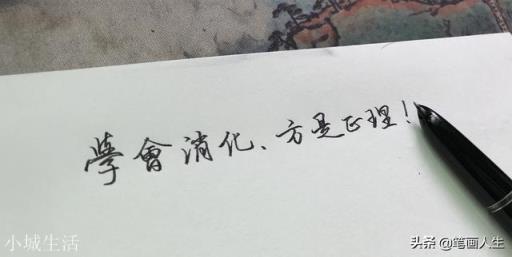 學會消化、方是正理！
小城生活
头条 @笔画人生